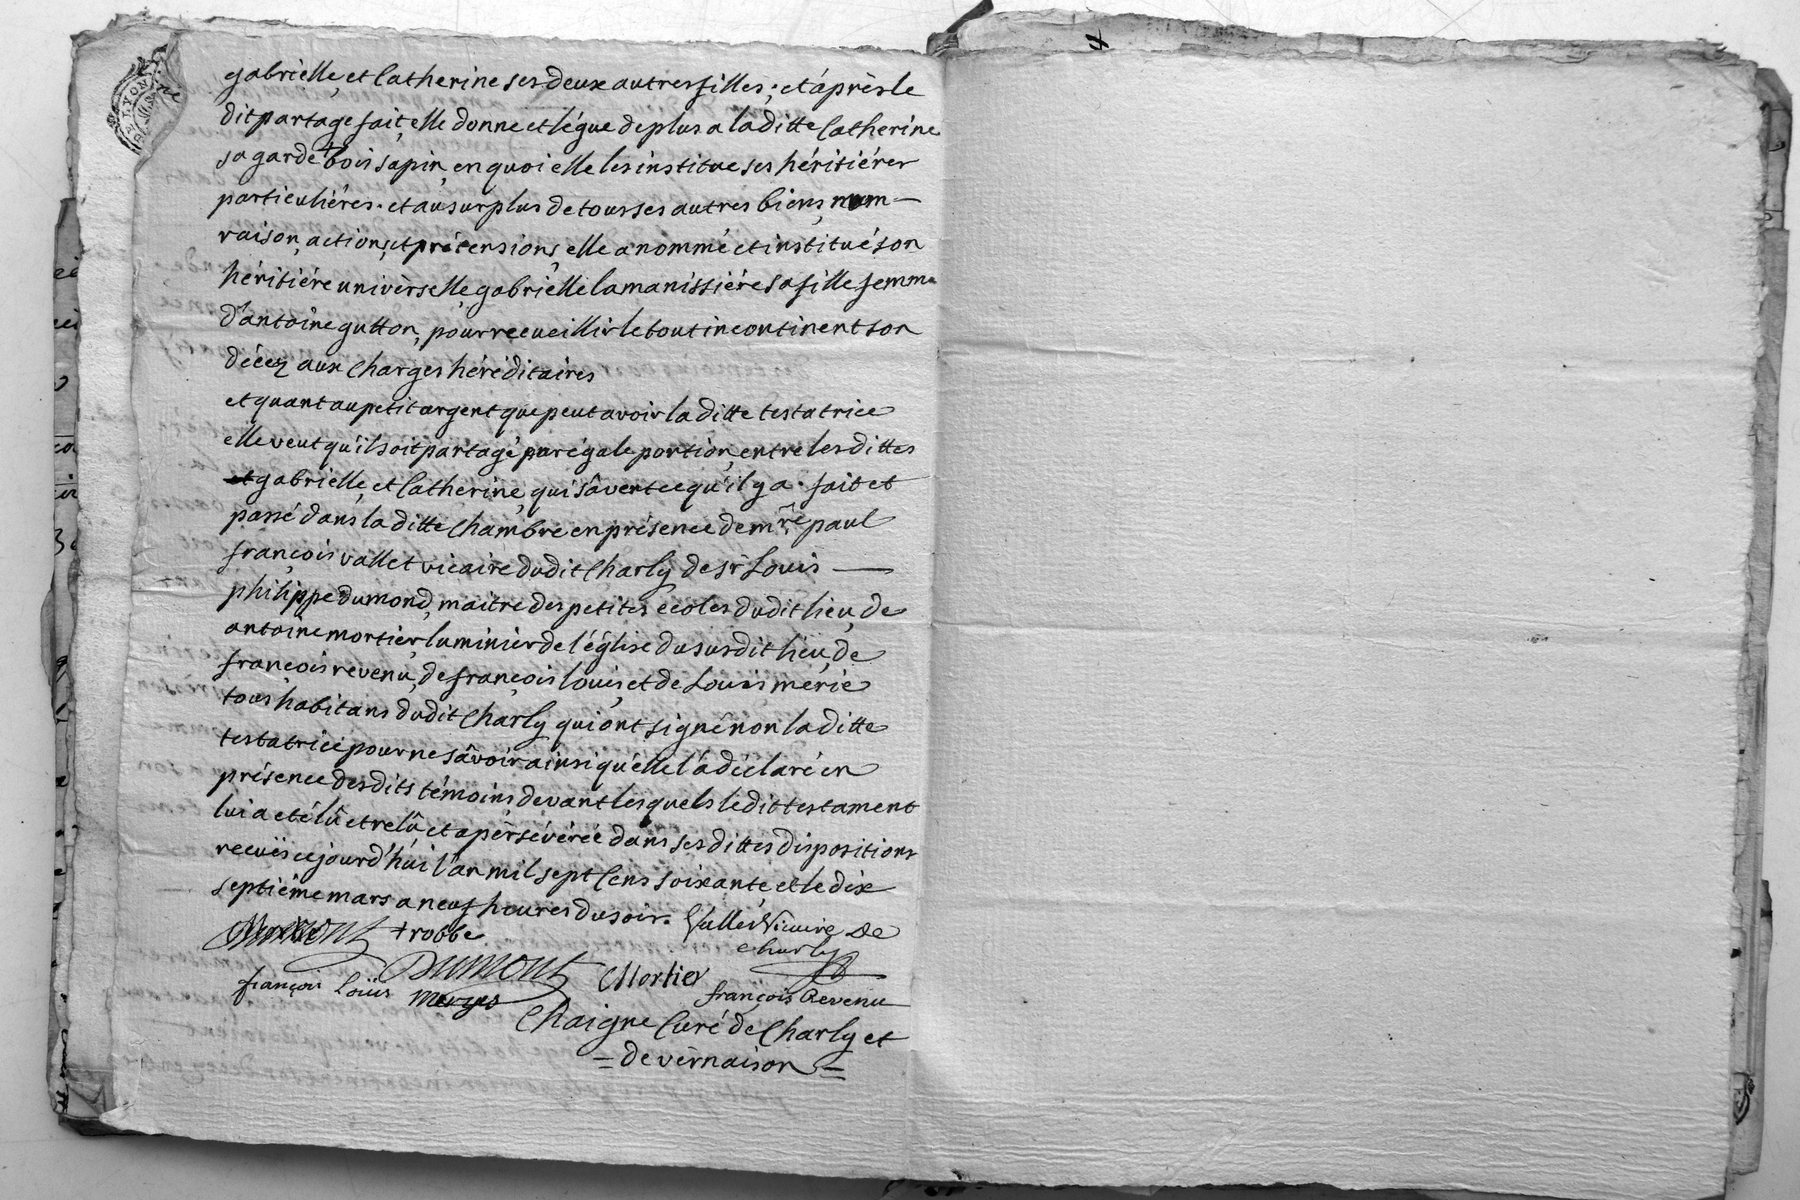 gabrielle, et Catherine ses deux autres filles; et áprés le
dit partage fait, elle donne et légue de plus a laditte Catherine
sa garde bois sapin, en quoi elle les institue ses héritiéres
particuliéres. et aú surplus de tous ses autres biens, nom —
raison, actions, et prétensions, elle a nommé et institué son
héritiére univèrselle, gabrielle lamanissiére sa fille femme
d'antoine gutton, pour recueillir le tout incontinent son
décez aux charges héréditaires
et quant au petit argent que peut avoir laditte testatrice
elle veut qu'il soit partagé par égale portion, entre lesdittes
gabrielle, et Catherine, qui sâvent ce qu'il y a. fait et
passé dans laditte chambre en présence de mre paul
françois vallet vicaire dudit Charly, de sr Louis —
philippe dumond, maitre des petites ecoles dudit lieu, de
antoine mortier, luminier de l'église du susdit lieu, de
françois revenu, de françois louis, et de Louis mérie
tous habitans dudit Charly qui ont signé non laditte
testatrice pour ne sâvoir ainsi qu'elle l'a déclaré en
présence desdits témoins devant lesquels ledit testament
lui a eté lû et relû et a pérsévérée dans ses dittes dispositions
recuës cejourd'húi l'an mil sept cens soixante et le dix
septiéme mars a neuf heures du soir. Vallet Vicaire de
charly
+ robbe
Dumont Mortier
françois loüis meryes françois Revenu
Chaigne Curé de Charly et
= de vèrnaison =